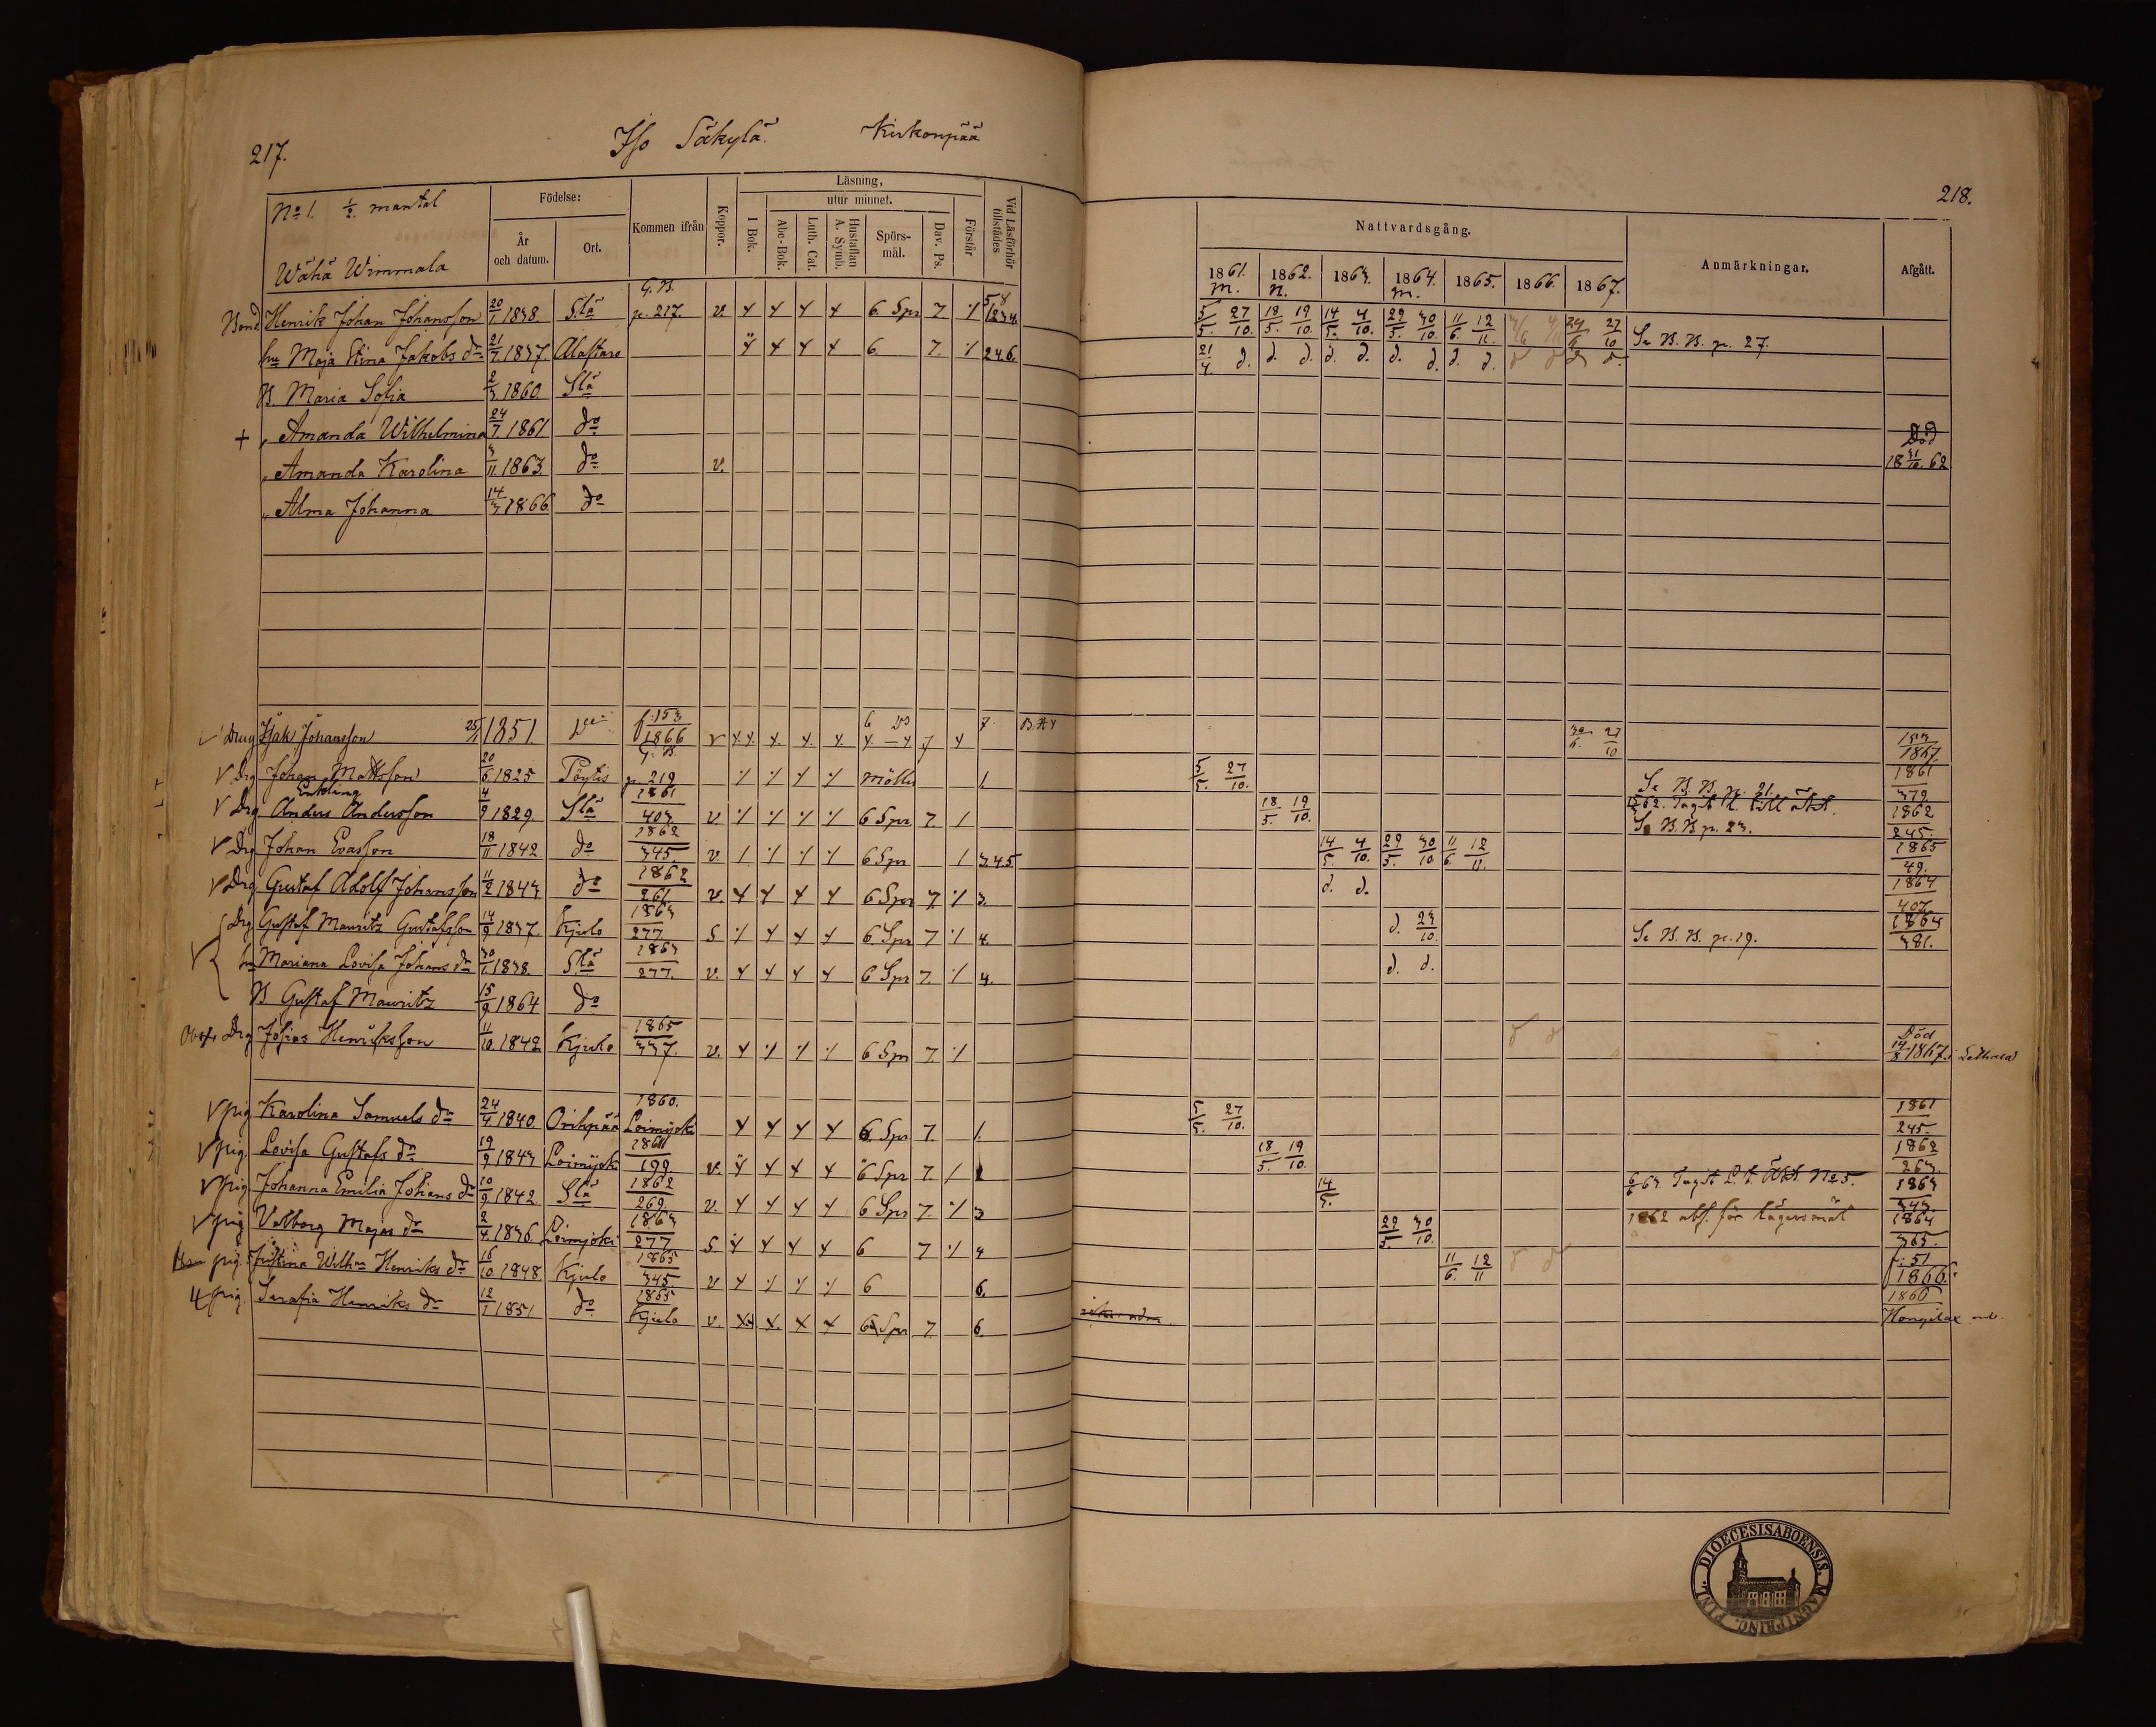 217.
Iso Säkylä. Kirkonpää
No 1. ½ mantal
Wähä Wimmala
Födelse:
År och datum.
Ort.
Kommen ifrån
Koppor.
Läsning,
I Bok.
utur minnet.
Abc-Bok.
Luth. Cat.
Hustaflan A. Symb.
Spörs-mål.
Dav. Ps.
Förstår
Vid Läsförhör tillstädes
Bond Henrik Johan Johansson 20/1 1838. S:lä G. B. p. 217. v. 6. Spr 7.
hu Maja Stina Jakobs dr 21/7 1837. Alastaro 6. 7. 246.
B. Maria Sofia 2/3 1860. S:lä
+ " Amanda Wilhelmina 24/7 1861. do
" Amanda Karolina 3/11 1863 do v.
" Alma Johanna 14/3 1866. do
Dräng Isak Johansson 25/1 1851. f. 153 1866 7. B. A 4
Drg Johan Mattsson 20/6 1825 Pöytis G. B. p. 219 1.
Enkling
Drg Anders Andersson 4/9 1829. S:lä 1861 403 v. 6 Spr 7
Drg Johan Evasson 18/11 1842 do 1862 345. v. 6 Spr 3.4.5
Drg Gustaf Adolf Johansson 11/2 1843 do 1862 261. v. 6 Spr 7. 3.
Drg Gustaf Mauritz Gustafsson 14/9 1837. Kjulo 1863 277. S 6 Spr 7 4.
hu Mariana Lovisa Johans dr 30/1 1838. S:lä 1863 277. v. 6 Spr 7. 4.
B Gustaf Mauritz 15/9 1864 do
Drg Josias Henriksson 11/10 1842 Kjulo 1865 337. v. 6 Spr 7
pig Karolina Samuels dr 24/4 1840. Orihpää 1860. Loimijoki 6. Spr 7. 1.
pig. Lovisa Gustafs dr 19/9 1843 Loimijoki 1861 199. v. 6 Spr 7.
pig Johanna Emilia Johans dr 10/9 1842. S:lä 1862 269. v. 6 Spr 7. 3
pig Valborg Majas dr 2/4 1836. Loimijoki 1863 277 S 6 7 4
pig. Justina Wilh:na Henriks dr 16/10 1848. Kjulo 1865 345. v 6 6.
pig. Serafia Henriks dr 12/1 1851. do 1865 Kjulo v. 6 Spr 7. 6.
218.
Nattvardsgång.
1861. 1862. 1863. 1864. 1865. 1866. 1867.
m. n. m.
Anmärkningar.
Afgått.
5/5. 27/10. 18/5. 19/10. 14/5. 4/10. 29/5. 30/10. 11/6. 12/11. 27/10 Se B. B. p. 27.
21/4. d. d. d. d. d. d. d. d. d. d d d d.
Död
18 31/10. 62
30/6. 27/10 153 1867
5/5. 27/10. Se B. B. p. 21. 1861 379.
18/5. 19/10. 62. Tagit till äkt. Se B. B p. 23. 1862 245.
14/5. 4/10. 29/5. 30/10 11/6. 12/11. 1865 49.
d. d. 1864 407.
d. 23/10. Se B. B. p. 19. 1864 381.
d. d.
d d Död 14/8 1867. i Letthala
5/5. 27/10. 1861 245.
18/5. 19/10. 1862 263.
14/5. 6/6 63. Tagit L. t. Äkt. No 5. 1863 343.
29/5. 30/10. 1862 abs. för lägersmål 1864 365.
11/6. 12/11 d d f. 51 1866.
1866 Hongilax
FINL. DIOECESIS ABOENSIS. MAGNI PRINC.